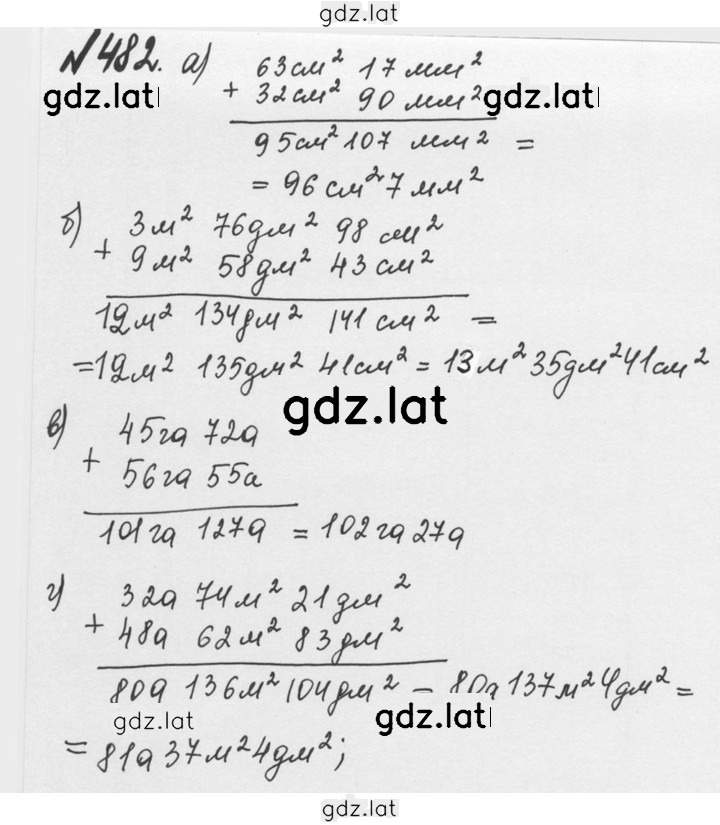 gdz.lat
№482. а) 63см² 17 мм²
+ 32см² 90 мм²
gdz.lat gdz.lat
95см² 107 мм² =
= 96 см² 7 мм²
б) 3м² 76дм² 98 см²
+ 9м² 58дм² 43 см²
12м² 134дм² 141 см² =
=12м² 135дм² 41см² = 13м² 35дм² 41см²
gdz.lat
в) 45га 72а
+ 56га 55а
101га 127а = 102га 27а
г) 32а 74м² 21дм²
+ 48а 62м² 83дм²
80а 136м² 104дм² = 80а 137м² 4дм² =
gdz.lat gdz.lat
= 81а 37м² 4дм²;
gdz.lat